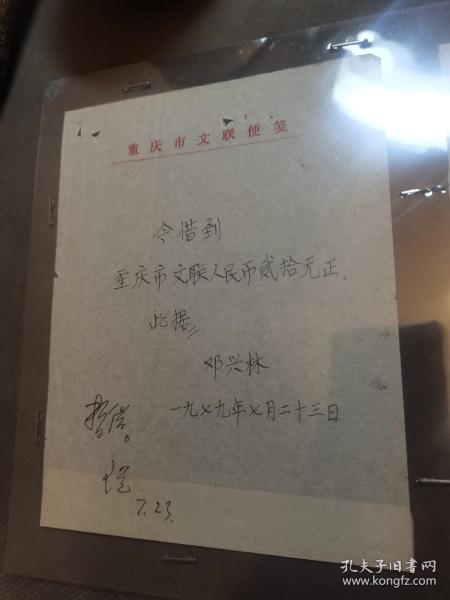 重庆市文联便笺
今借到
重庆市文联人民币贰拾元正。
此据
邓兴林
一九七九年七月二十三日
暂借。
7.23.
孔夫子旧书网
www.kongfz.com